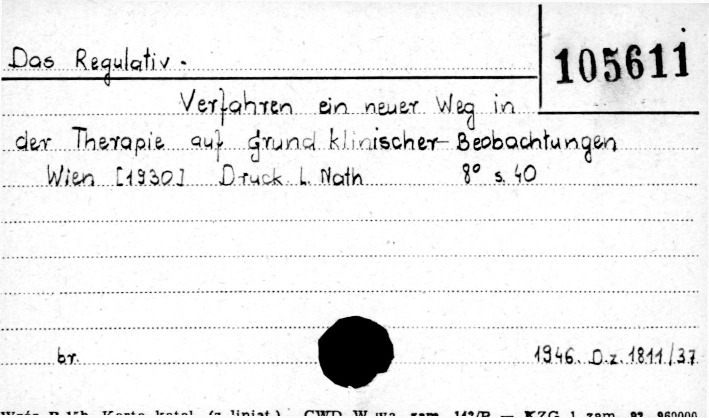 Das Regulativ.
105611
Verfahren ein neuer Weg in
der Therapie auf grund klinischer Beobachtungen
Wien [1930] Druck L. Nath 8° s. 40
br. 1946. D.z. 1811/37
Karta katal. (z liniat.) CWD W-wa, zam. 143/P — KZG 1 zam.